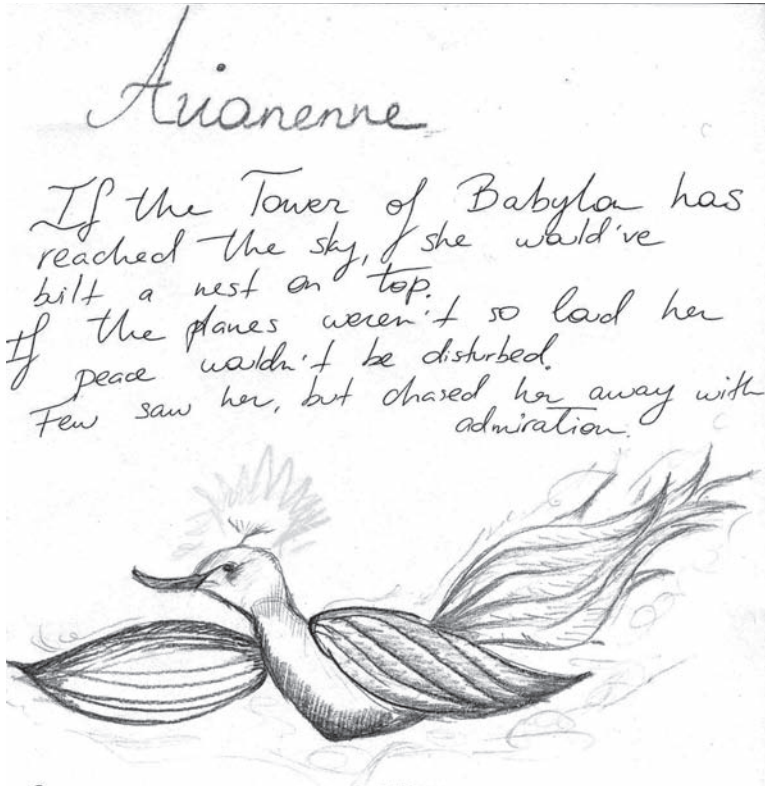 If the Tower of Babylon has
reached the sky, she would've
built a nest on top.
If the planes weren't so loud her
peace wouldn't be disturbed.
Few saw her, but chased her away with
admiration.